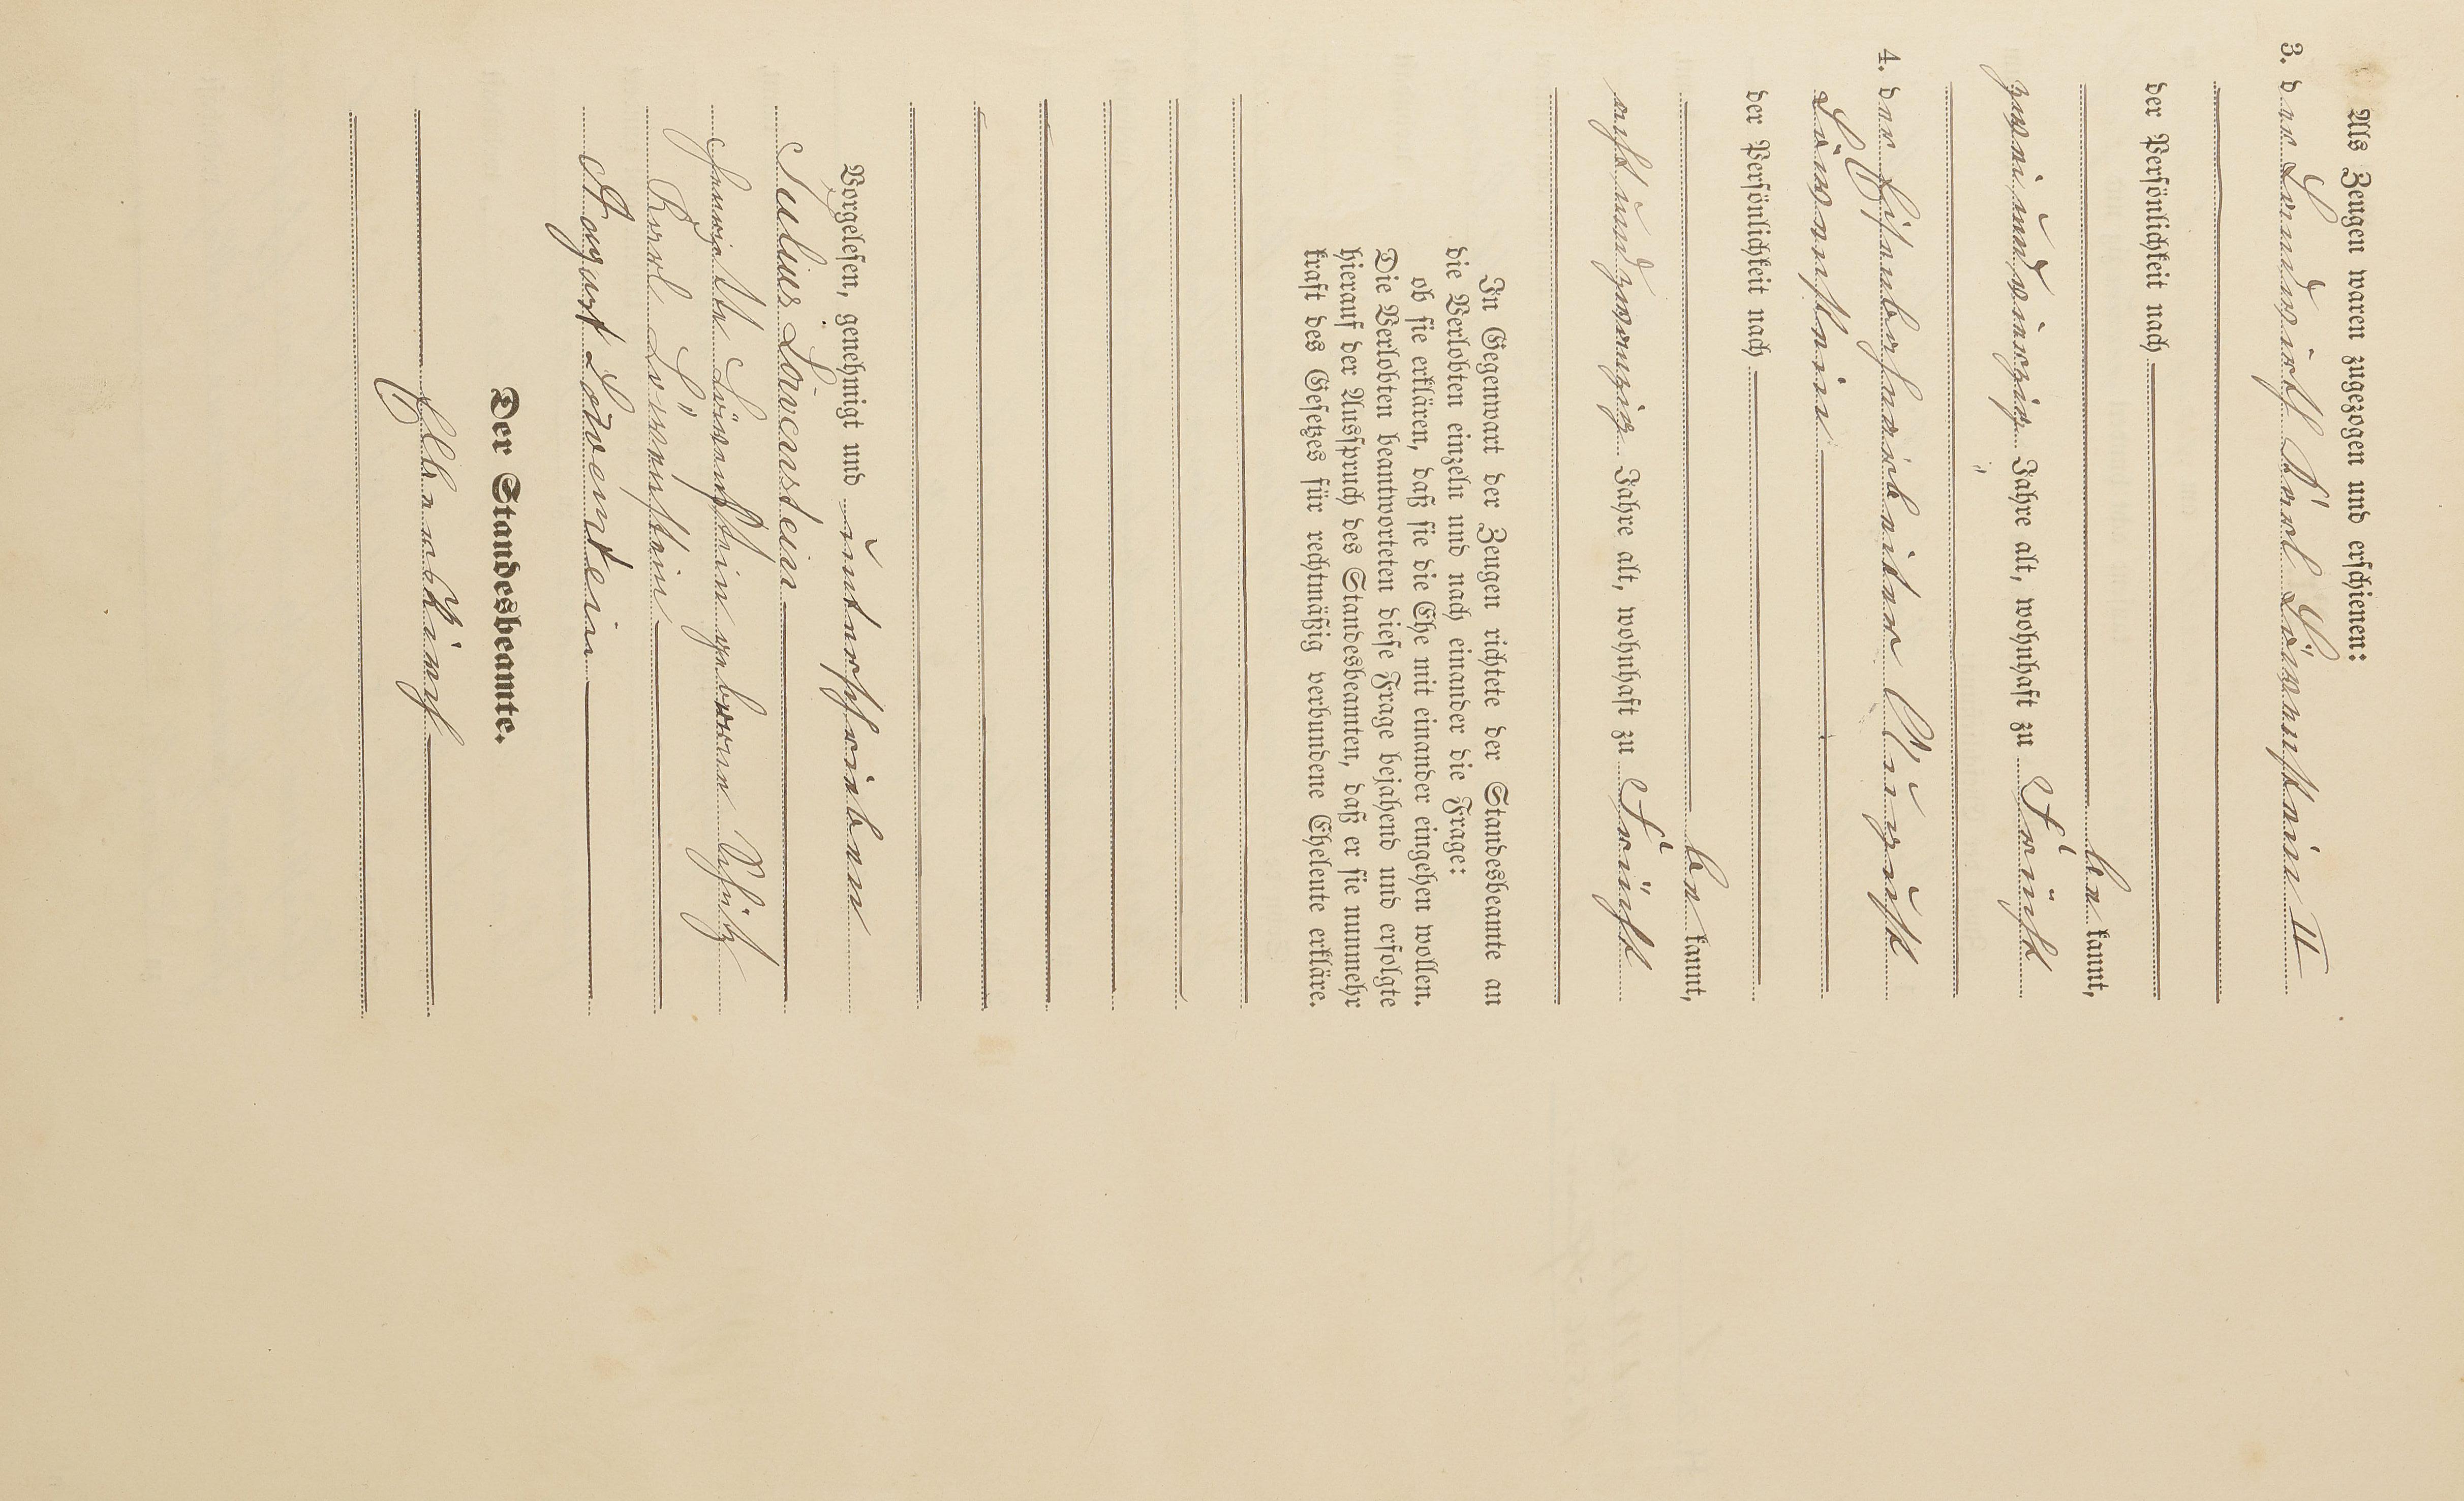 Als Zeugen waren zugezogen und erschienen:
3. der Landwirth Karl Löwenstein II
der Persönlichkeit nach
be kannt,
zwei und vierzig Jahre alt, wohnhaft zu
4. der Eisenbahnarbeiter August
Löwenstein
der Persönlichkeit nach
be kannt,
acht und zwanzig Jahre alt, wohnhaft zu
In Gegenwart der Zeugen richtete der Standesbeamte an
die Verlobten einzeln und nach einander die Frage:
ob sie erklären, daß sie die Ehe mit einander eingehen wollen.
Die Verlobten beantworteten diese Frage bejahend und erfolgte
hierauf der Ausspruch des Standesbeamten, daß er sie nunmehr
kraft des Gesetzes für rechtmäßig verbundene Eheleute erkläre.
Vorgelesen, genehmigt und unterschrieben
Julius Löwenstein
Löwenstein geborene
Karl Löwenstein
August Löwenstein
Der Standesbeamte.